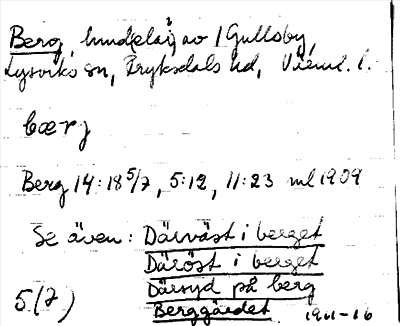 Berg, hmd(elar) av 1 Gullsby,
Lysviks sn, Fryksdals hd, Värml. l.
bærj
Berg 14:18 5/7, 5:12, 11:23 ml 1909
Se även: Därväst i berget
Däröst i berget
Därsyd på berg
5(7) Berggärdet 1911-16